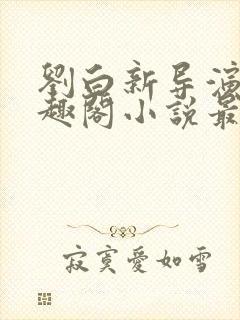 劉白新导演
趣閣小說最
寂寞愛如雪